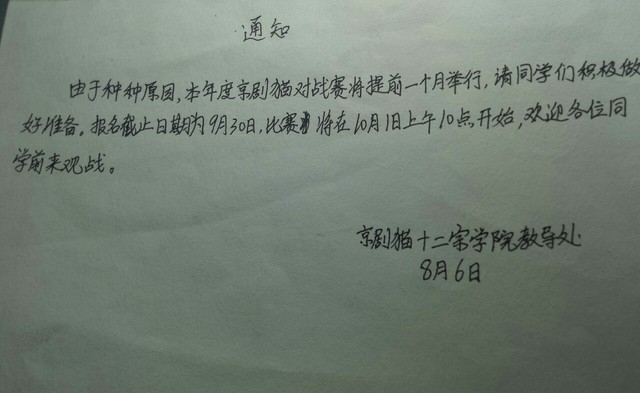 通知
由于种种原因,本年度京剧猫对战赛将提前一个月举行,请同学们积极做
好准备。报名截止日期为9月30日,比赛将在10月1日上午10点开始,欢迎各位同
学前来观战。
京剧猫十二宗学院教导处
8月6日